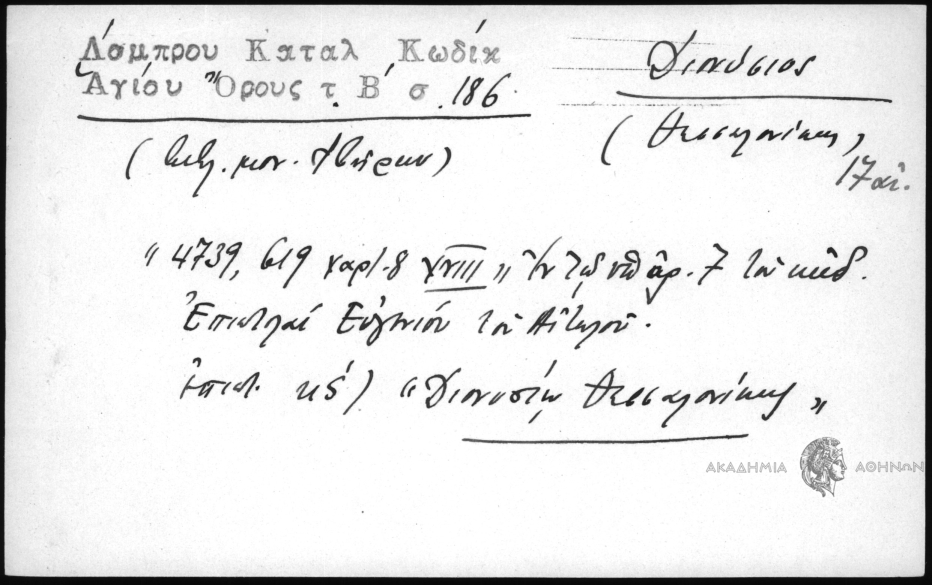 Λάμπρου Καταλ Κωδίκ
Ἁγίου Ὄρους τ. Β΄ σ. 186.
Διονύσιος
(Θεσσαλονίκης)
17 αἰ.
(βιβλ. μον. Ἰβήρων)
“ 4739, 619 χαρτ. 8 XVIII „ Ἐν τῷ ὑπ' ἀρ. 7 τοῦ κώδ.
Ἐπιστολαί Εὐγενίου τοῦ Αἰτωλοῦ.
ἐπιστ. κς΄) “Διονυσίῳ Θεσσαλονίκης „
ΑΚΑΔΗΜΙΑ ΑΘΗΝΩΝ